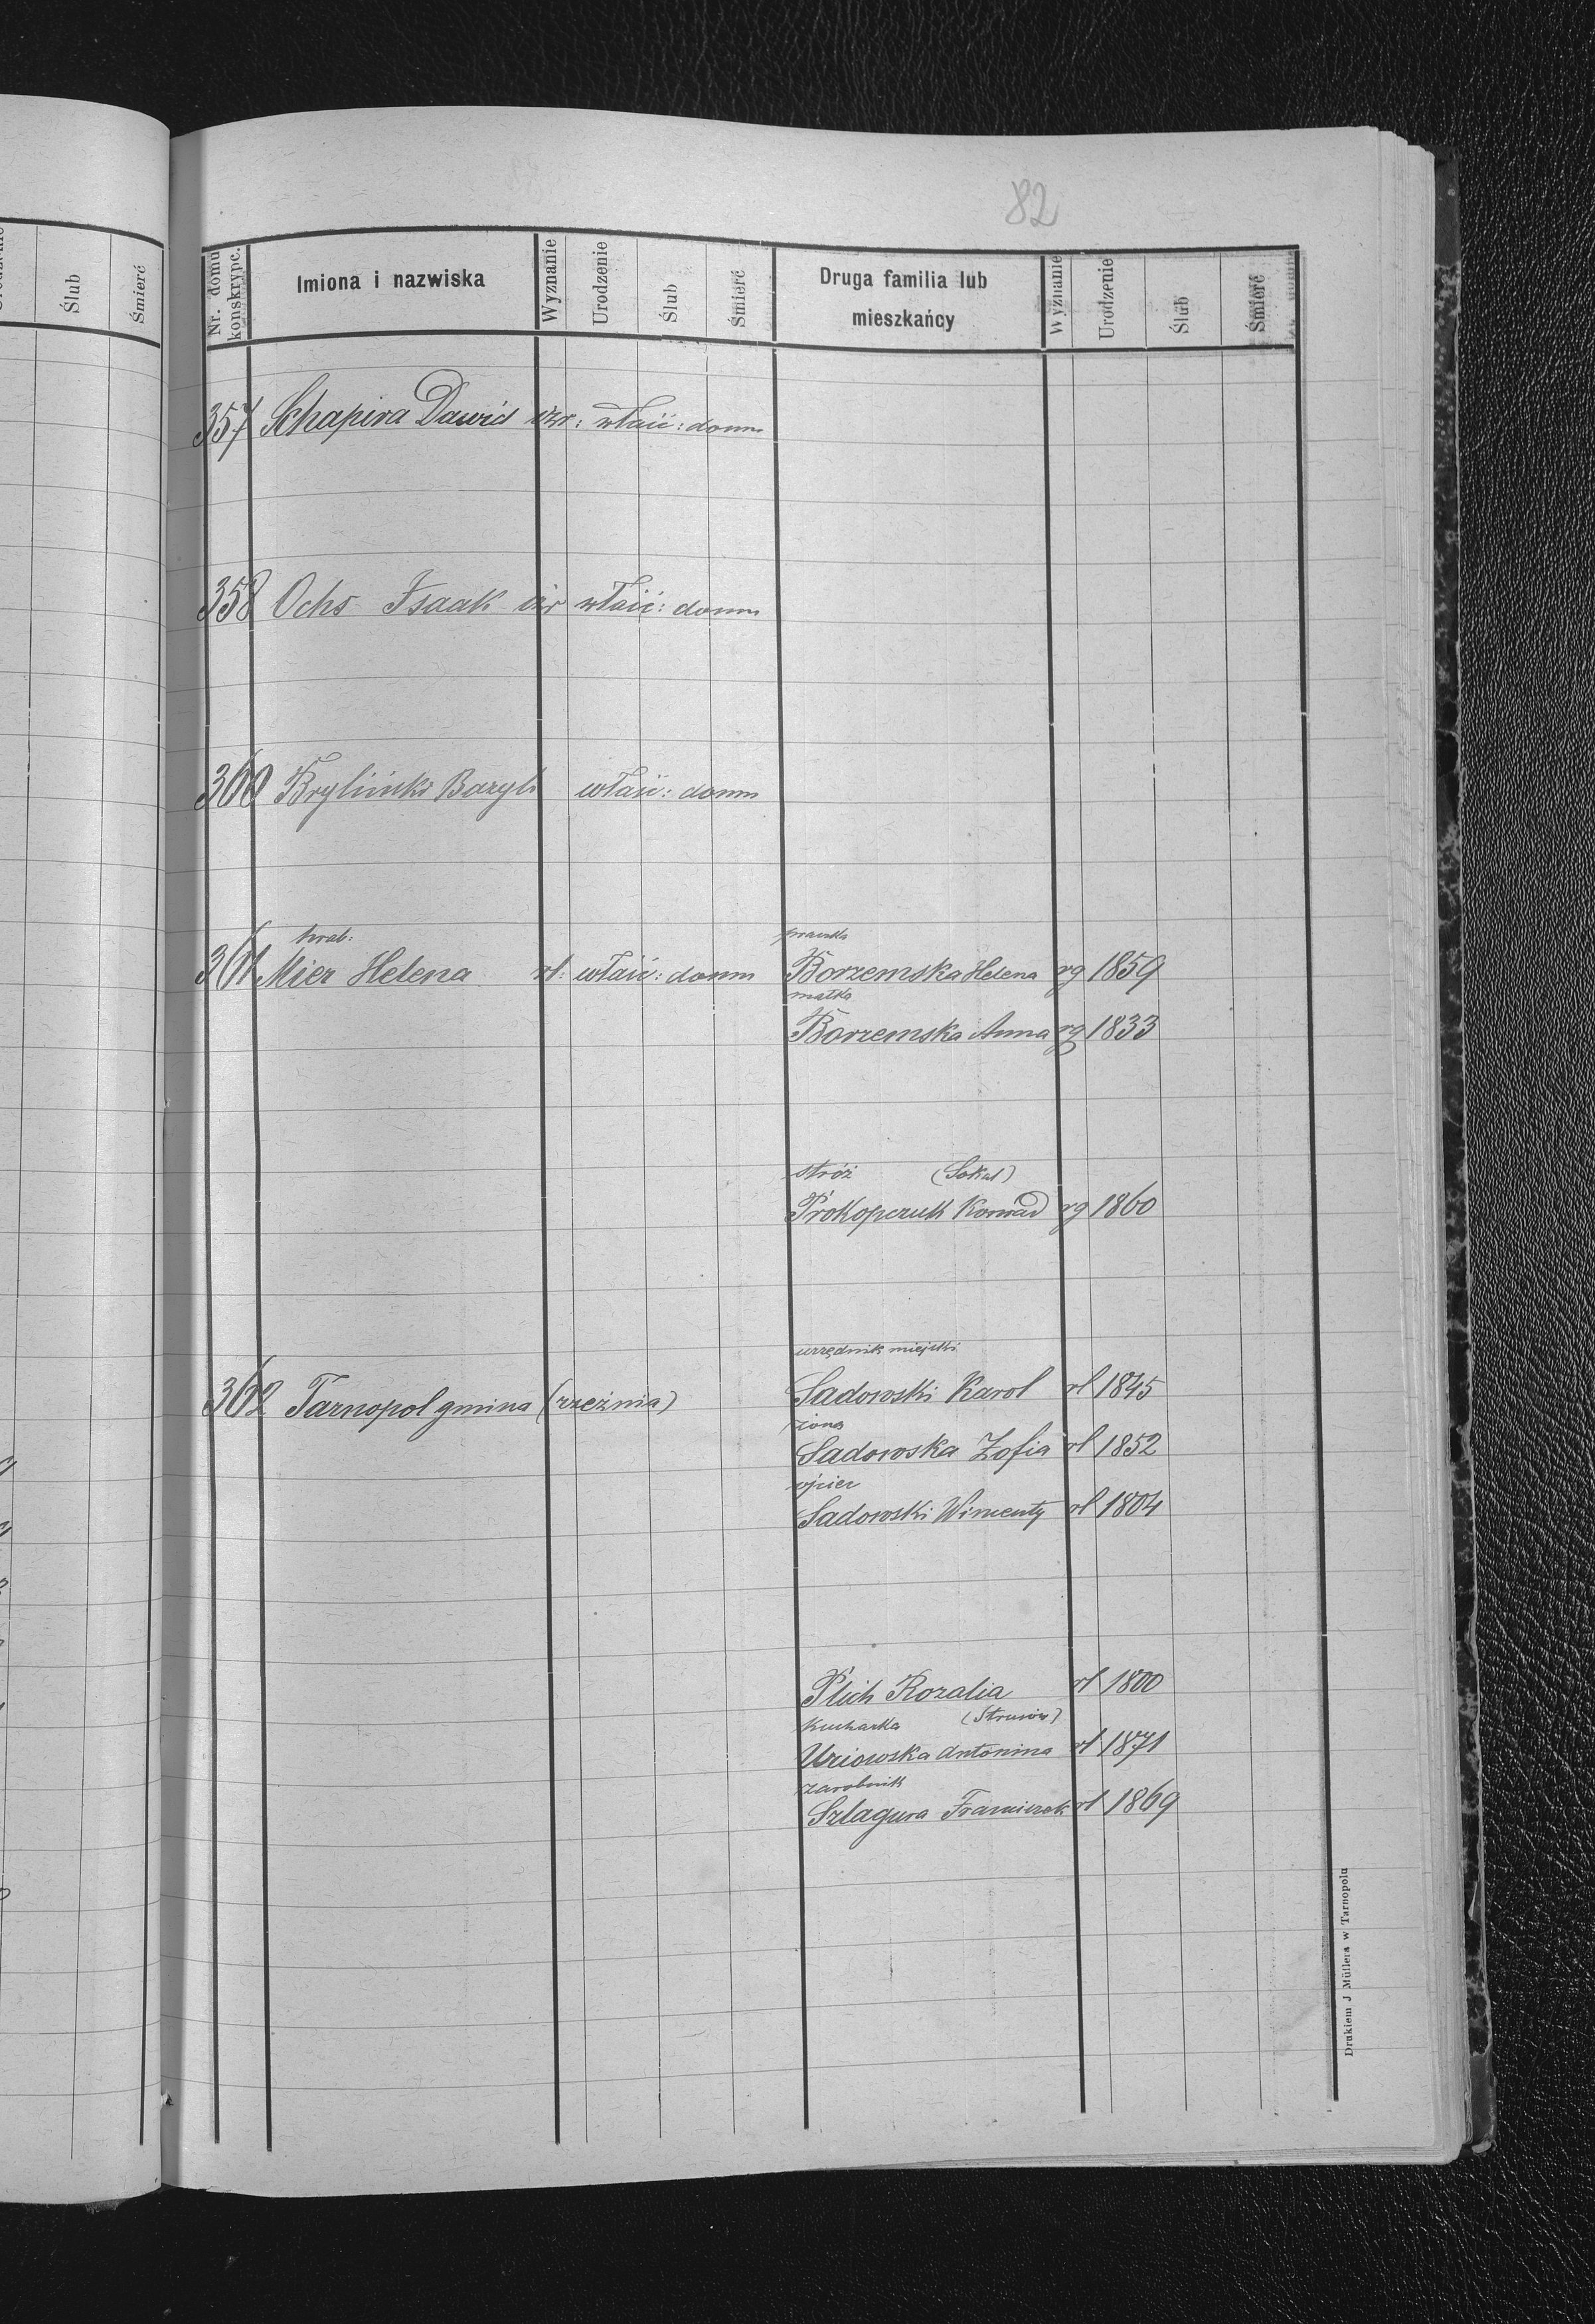 82
Ślub
Śmierć
Nr. domu konskrypc.
Imiona i nazwiska
Wyznanie
Urodzenie
Ślub
Śmierć
Druga familia lub mieszkańcy
Wyznanie
Urodzenie
Ślub
Śmierć
357 Schapira Dawid izr: właść: domu
358 Ochs Isaak izr właść: domu
360 Bryliński Bazyli właść: domu
hrab: praczka
361 Mier Helena rł: właść: domu Borzemska Helena rg 1859
matka
Borzemska Anna rg 1833
stróż (Sokal)
Prokopczuk Konrad rg 1860
urzędnik miejski
362 Tarnopol gmina (rzeźnia) Sadowski Karol rł 1845
żona
Sadowska Zofia rł 1852
ojciec
Sadowski Wincenty rł 1804
Plich Rozalia rł 1800
Kucharka (Strusów)
Uziowska Antonina rł 1871
zarobnik
Szlagura Franciszek rł 1869
Drukiem J Müllera w Tarnopolu